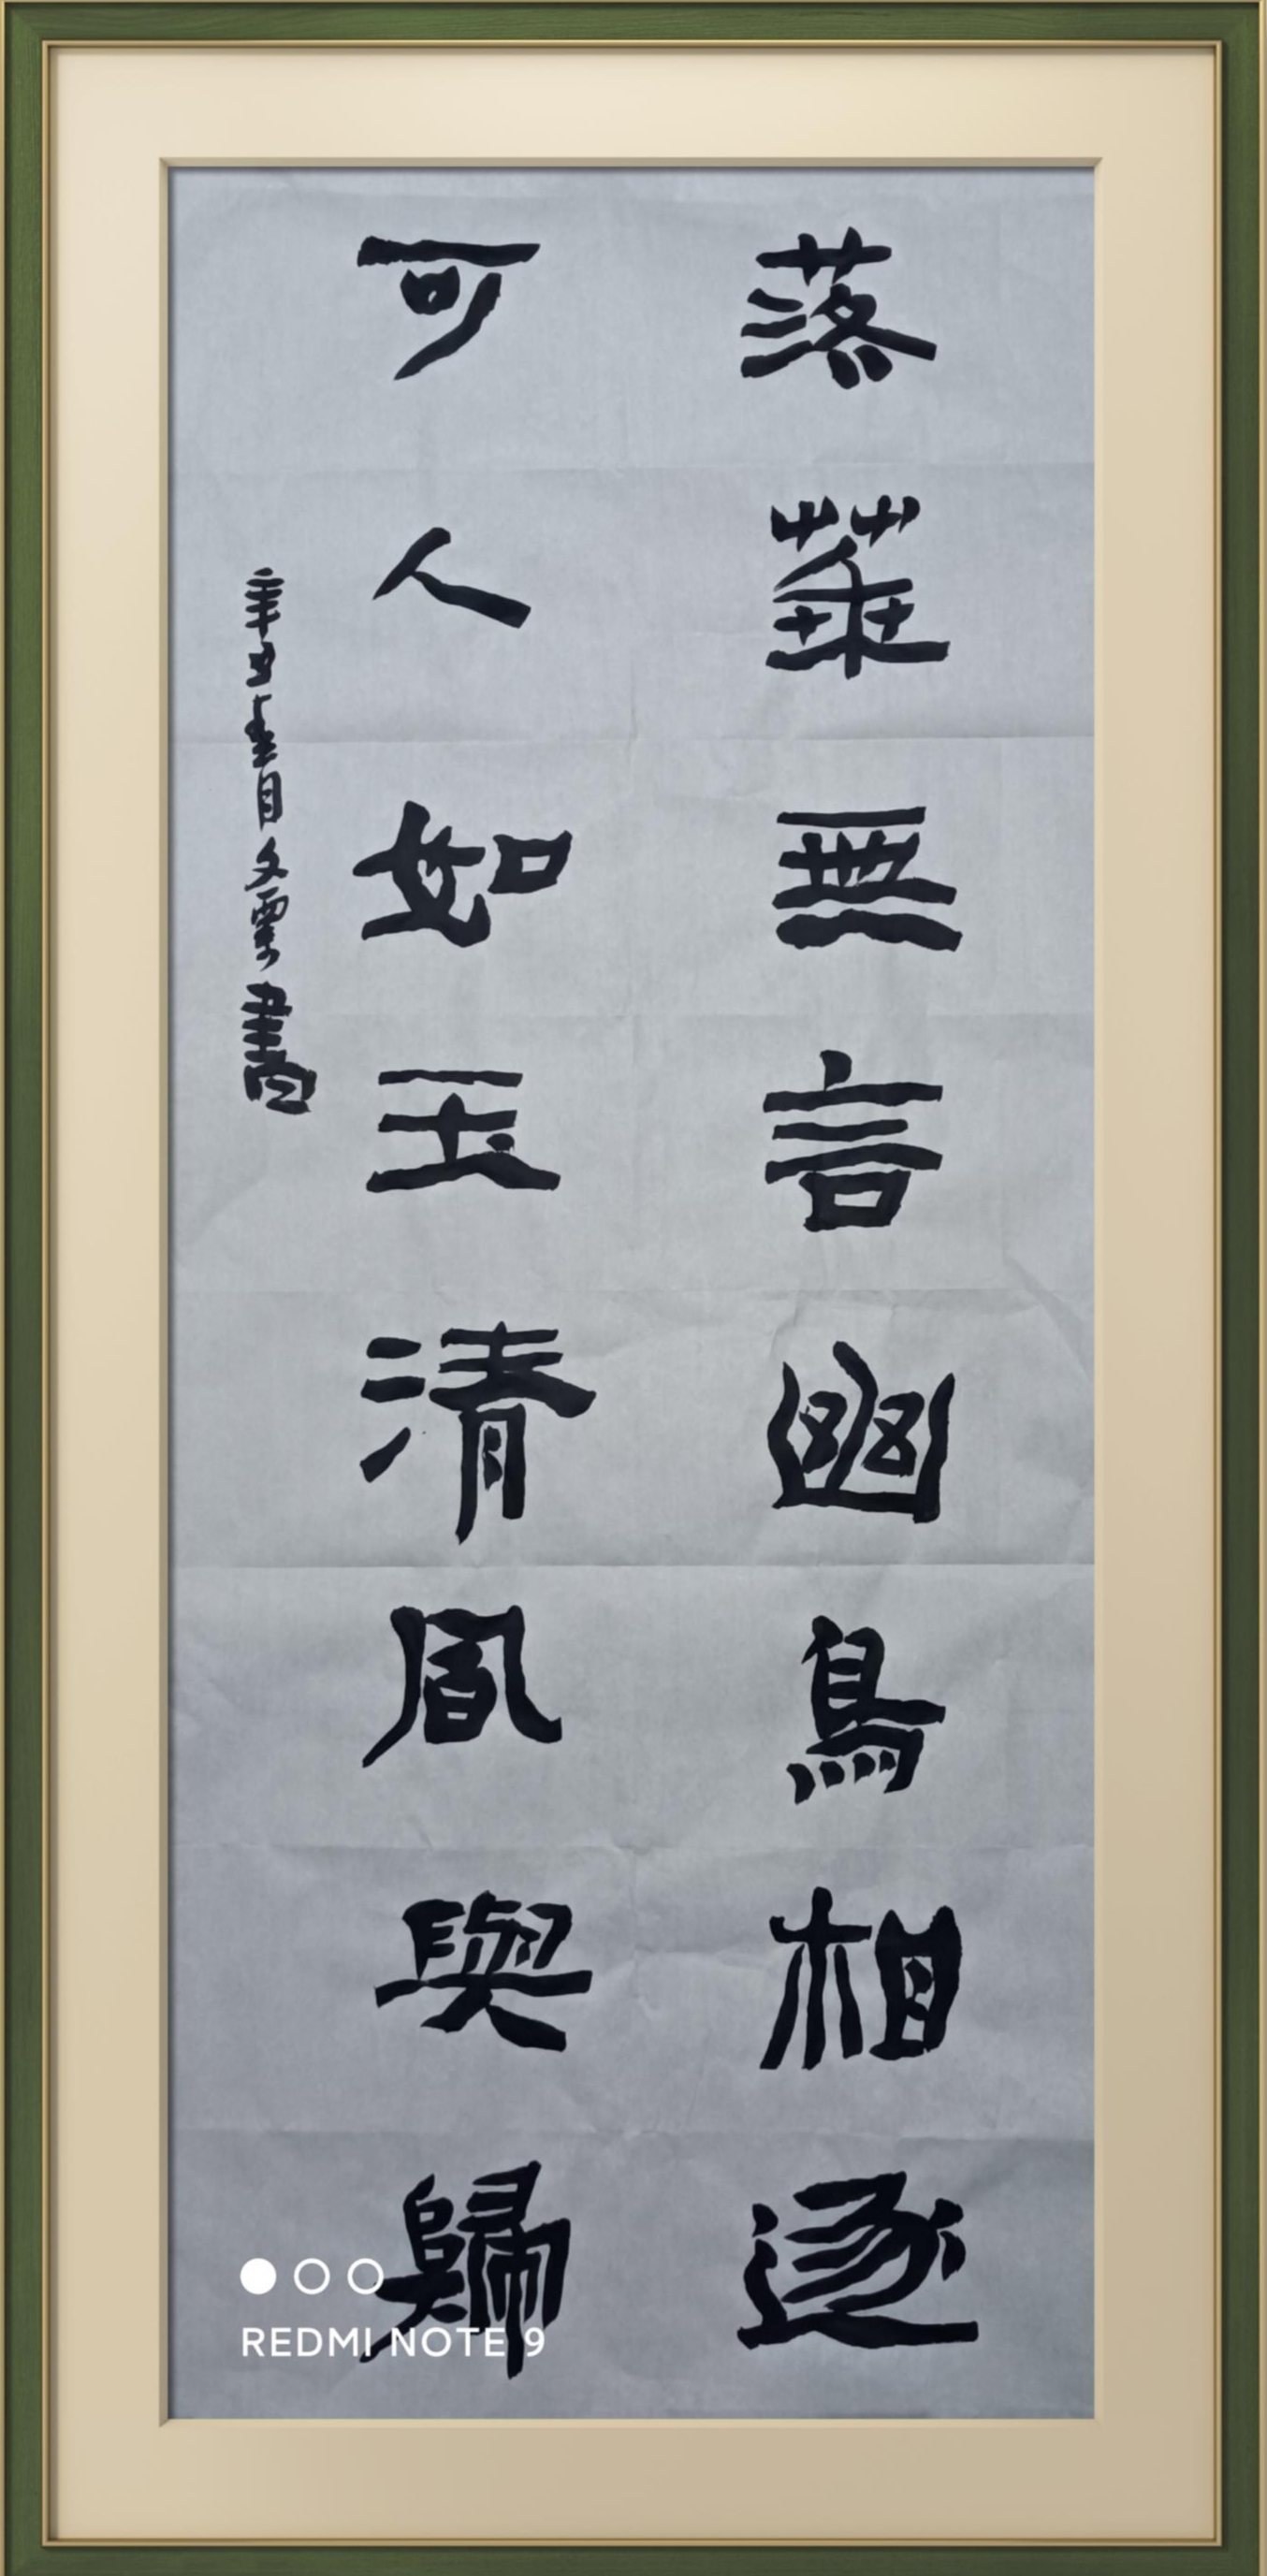 落葉無言幽鳥相逐
可人如玉清風與歸
辛丑春月文票書
REDMI NOTE 9